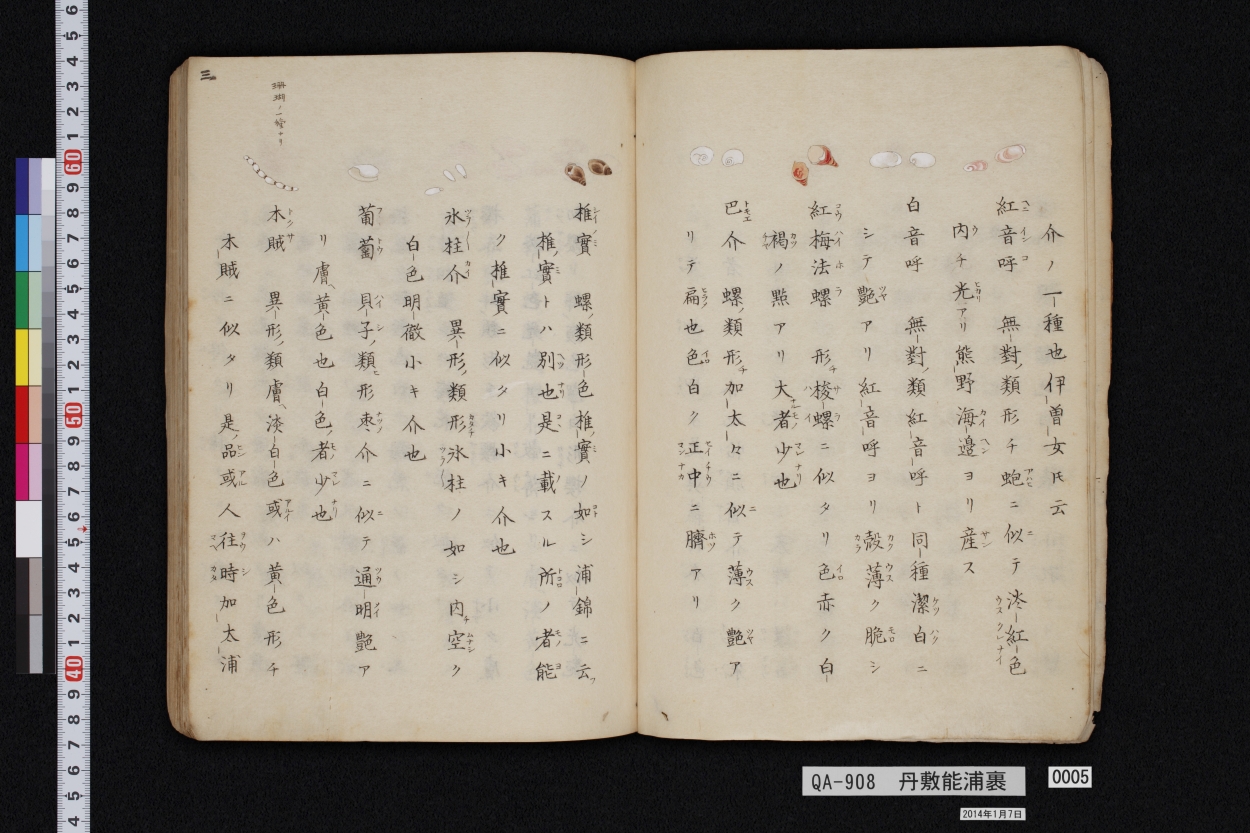 介ノ一種也伊曽女氏云
紅音呼 無對ノ類形チ蚫ニ似テ淡紅色
内チ光アリ熊野海邊ヨリ産ス
白音呼 無對ノ類紅音呼ト同種潔白ニ
シテ艶アリ紅音呼ヨリ殻薄ク脆シ
紅梅法螺 形チ梭螺ニ似タリ色赤ク白
褐ノ點アリ大者少也
巴介 螺ノ類形チ加太々ニ似テ薄ク艶ア
リテ扁也色白ク正中ニ臍アリ
椎實 螺ノ類形色椎ノ實ノ如シ浦錦ニ云フ
椎ノ實トハ別也是ニ載スル所ノ者能
ク椎實ニ似タリ小キ介也
氷柱介 異形ノ類形氷柱ノ如シ内チ空ク
白色明徹小キ介也
葡萄 貝子ノ類形棗介ニ似テ通明艶ア
リ膚ヘ黄色也白色ノ者少也
木賊 異形ノ類膚ヘ淡白色或ハ黄色形チ
木賊ニ似タリ是ノ品或人往時加太浦
珊瑚ノ一種ナリ
三
QA-908 丹敷能浦裹
0005
2014年1月7日